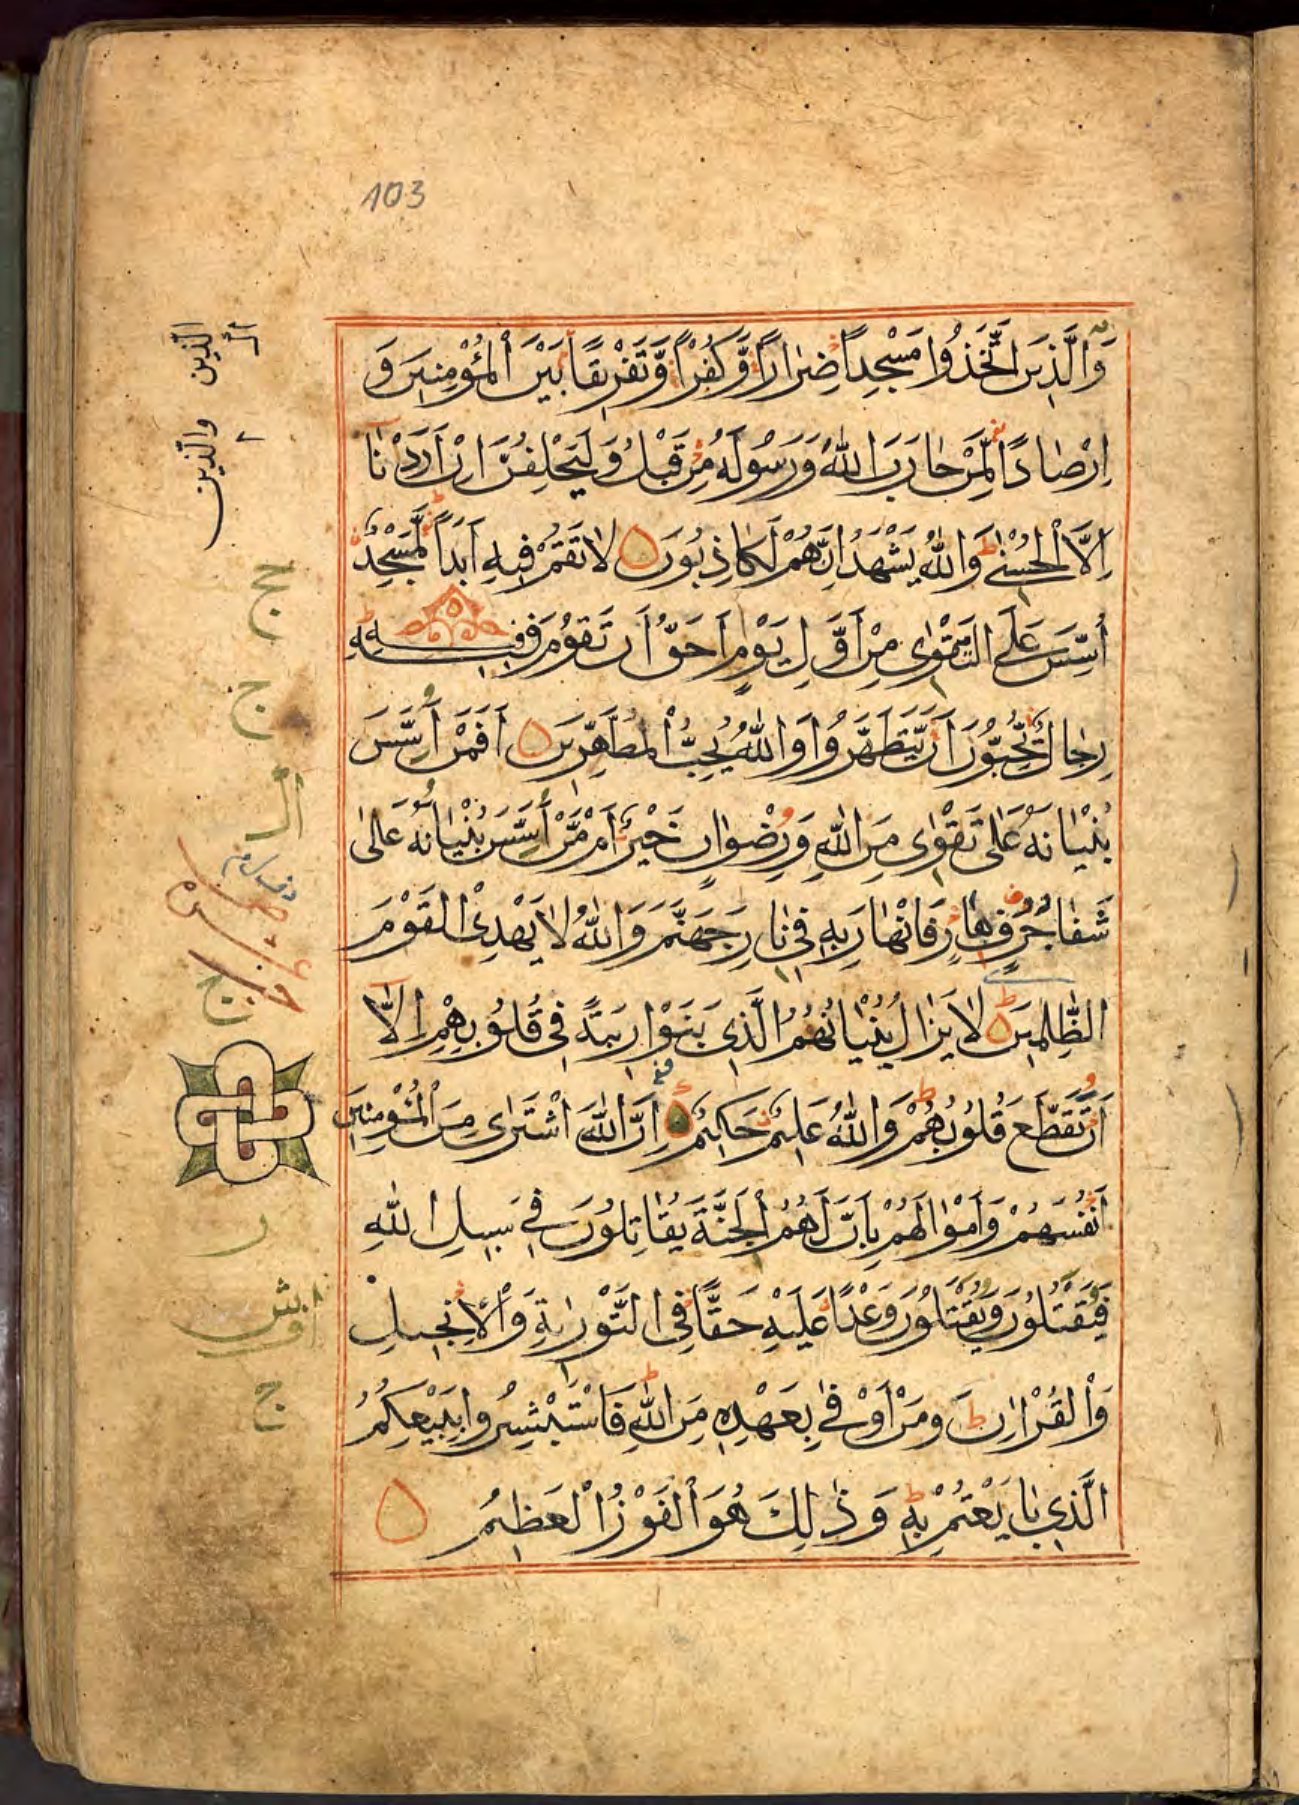 103
وَالَّذِينَ اتَّخَذُوا مَسْجِداً ضِرَاراً وَّكُفْراً وَّتَفْرِيقًا بَيْنَ الْمُؤْمِنِينَ وَ
اِرْصَادًا لِّمَنْ حَارَبَ اللّٰهَ وَرَسُولَهُ مِنْ قَبْلُ وَلَيَحْلِفُنَّ اِنْ اَرَدْنَا
اِلَّا الْحُسْنٰى ط وَاللّٰهُ يَشْهَدُ اِنَّهُمْ لَكَاذِبُونَ ۝ لَا تَقُمْ فِيهِ اَبَداً لَمَسْجِدٌ
اُسِّسَ عَلَى التَّقْوٰى مِنْ اَوَّلِ يَوْمٍ اَحَقُّ اَنْ تَقُومَ فِيهِ ط فِيهِ
رِجَالٌ يُّحِبُّونَ اَنْ يَّتَطَهَّرُوا وَاللّٰهُ يُحِبُّ الْمُطَّهِّرِينَ ۝ اَفَمَنْ اَسَّسَ
بُنْيَانَهُ عَلٰى تَقْوٰى مِنَ اللّٰهِ وَرِضْوَانٍ خَيْرٌ اَمْ مَّنْ اَسَّسَ بُنْيَانَهُ عَلٰى
شَفَا جُرُفٍ هَارٍ فَانْهَارَ بِهِ فِي نَارِ جَهَنَّمَ وَاللّٰهُ لَا يَهْدِي الْقَوْمَ
الظّٰلِمِينَ ۝ لَا يَزَالُ بُنْيَانُهُمُ الَّذِي بَنَوْا رِيبَةً فِي قُلُوبِهِمْ اِلَّا
اَنْ تَقَطَّعَ قُلُوبُهُمْ ط وَاللّٰهُ عَلِيمٌ حَكِيمٌ ۝ اِنَّ اللّٰهَ اشْتَرٰى مِنَ الْمُؤْمِنِينَ
اَنْفُسَهُمْ وَاَمْوَالَهُمْ بِاَنَّ لَهُمُ الْجَنَّةَ يُقَاتِلُونَ فِي سَبِيلِ اللّٰهِ
فَيَقْتُلُونَ وَيُقْتَلُونَ وَعْدًا عَلَيْهِ حَقًّا فِي التَّوْرٰيةِ وَالْاِنْجِيلِ
وَالْقُرْاٰنِ ط وَمَنْ اَوْفٰى بِعَهْدِهِ مِنَ اللّٰهِ ط فَاسْتَبْشِرُوا بِبَيْعِكُمُ
الَّذِي بَايَعْتُمْ بِهِ ط وَذٰلِكَ هُوَ الْفَوْزُ الْعَظِيمُ ۝
الذين والذين